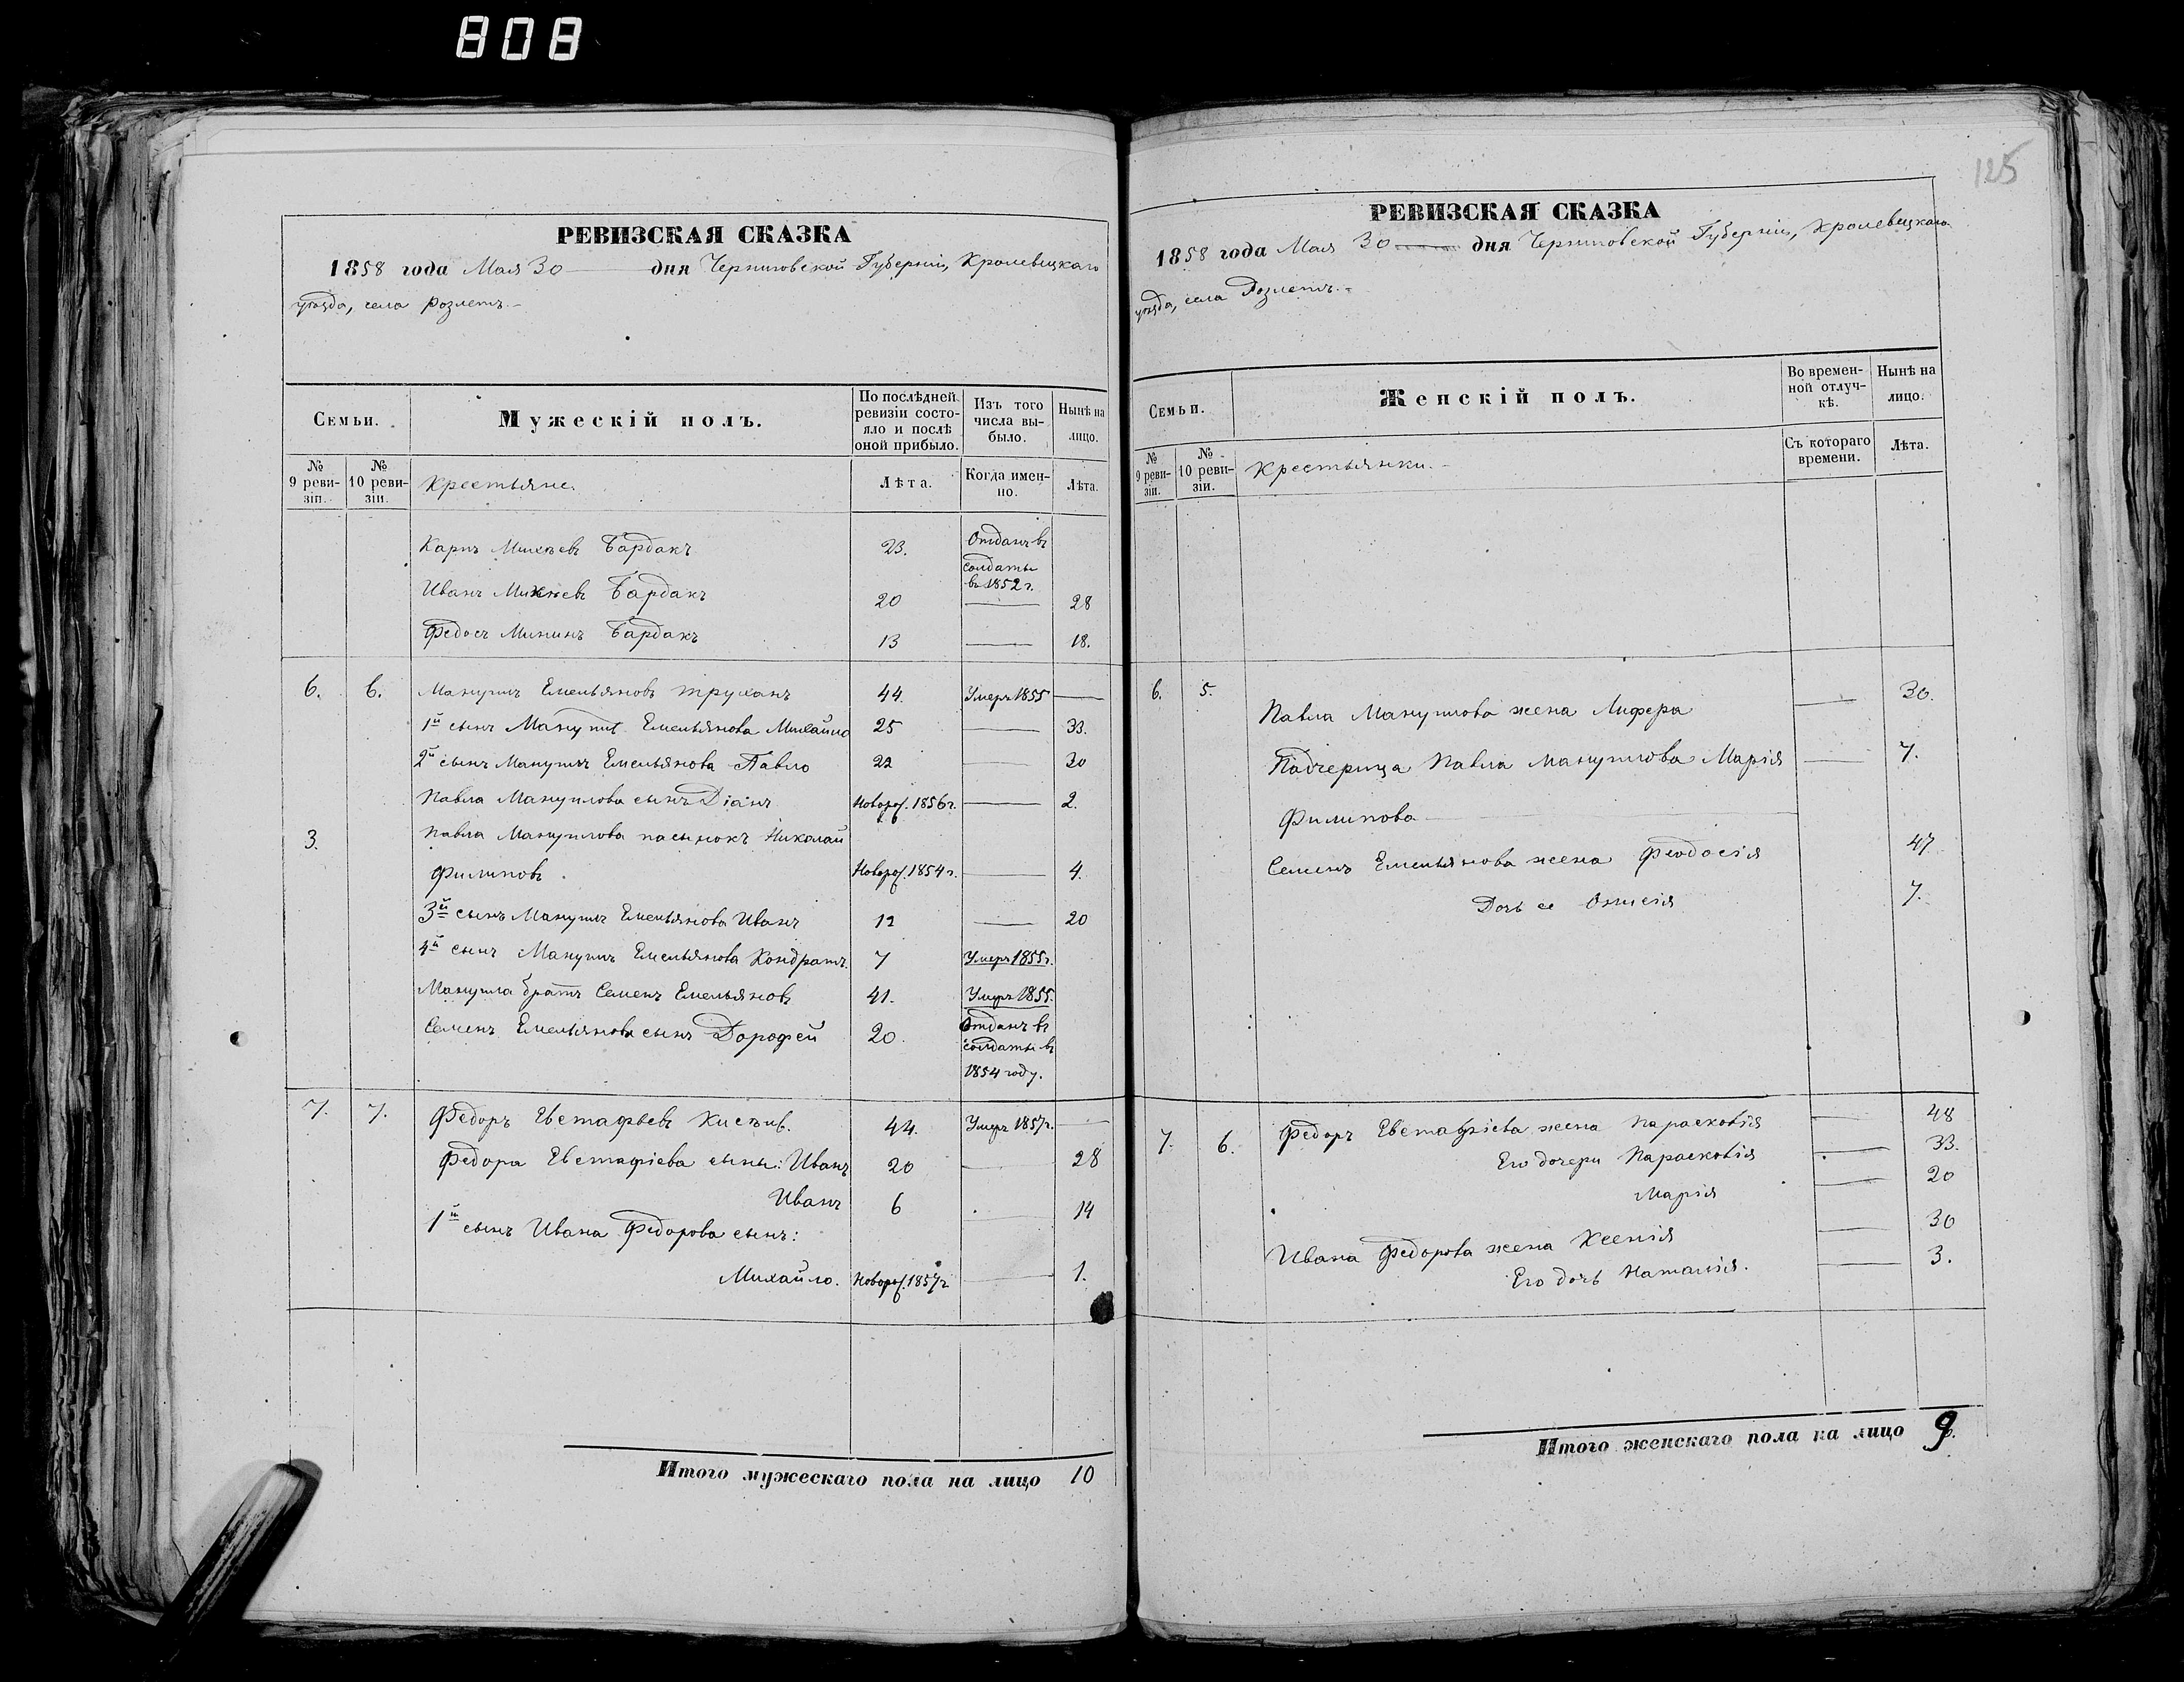 808
125
РЕВИЗСКАЯ СКАЗКА
1858 года Мая 30 дня Черниговской Губернiи, Кролевецкаго
уѣзда, села Розлетъ.
Семьи.
Мужескiй полъ.
По послѣдней ревизiи состояло и послѣ оной прибыло.
Изъ того числа выбыло.
Нынѣ на лицо.
№ 9 ревизiи.
№ 10 ревизiи.
Крестьяне.
Лѣта.
Когда именно.
Лѣта.
Карпъ Михѣевъ Бардакъ 23. Отданъ въ солдаты въ 1852 г.
Иванъ Михѣевъ Бардакъ 20 — 28
Федосъ Мининъ Бардакъ 13 — 18.
6. 6. Мануилъ Емельяновъ Труханъ 44. Умеръ 1855 —
1й сынъ Мануил Емельянова Михайло 25 — 33.
2й сынъ Мануилъ Емельянова Павло 22 — 30
Павла Мануилова сынъ Дiанъ Новорož. 1856 г. — 2.
3. Павла Мануилова пасынокъ Николай
Филиповъ. Новорож. 1854 г. — 4.
3й сынъ Мануилъ Емельянова Иванъ 12 — 20
4й сынъ Мануилъ Емельянова Кондратъ. 7 Умеръ 1855 г.
Мануила братъ Семенъ Емельяновъ 41. Умеръ 1855.
Семенъ Емельянова сынъ Дорофей 20. Отданъ въ солдаты въ 1854 году.
7. 7. Федоръ Евстафьевъ 44. Умеръ 1857 г. —
Федора Евстафiева сыны: Иванъ 20 — 28
Иванъ 6 — 14
1й сынъ Ивана Федорова сынъ:
Михайло. Новорож. 1857 г. — 1.
Итого мужескаго пола на лицо 10
РЕВИЗСКАЯ СКАЗКА
1858 года Мая 30 дня Черниговской Губернiи, Кролевецкаго
уѣзда, села Розлетъ.
Семьи.
Женскiй полъ.
Во временной отлучкѣ.
Нынѣ на лицо.
№ 9 ревизiи.
№ 10 ревизiи.
Крестьянки.
Съ котораго времени.
Лѣта.
6. 5. Павла Мануилова жена Лифера — 30.
Падчерица Павла Мануилова Марiя — 7.
Филипова
Семенъ Емельянова жена Феодосiя 47.
Дочь ее 7.
7. 6. Федоръ Евстафiева жена Парасковiя — 48
Его дочери Парасковiя — 33.
Марiя — 20
Ивана Федорова жена Ксенiя — 30
Его дочь Наталiя. — 3.
Итого женскаго пола на лицо 9